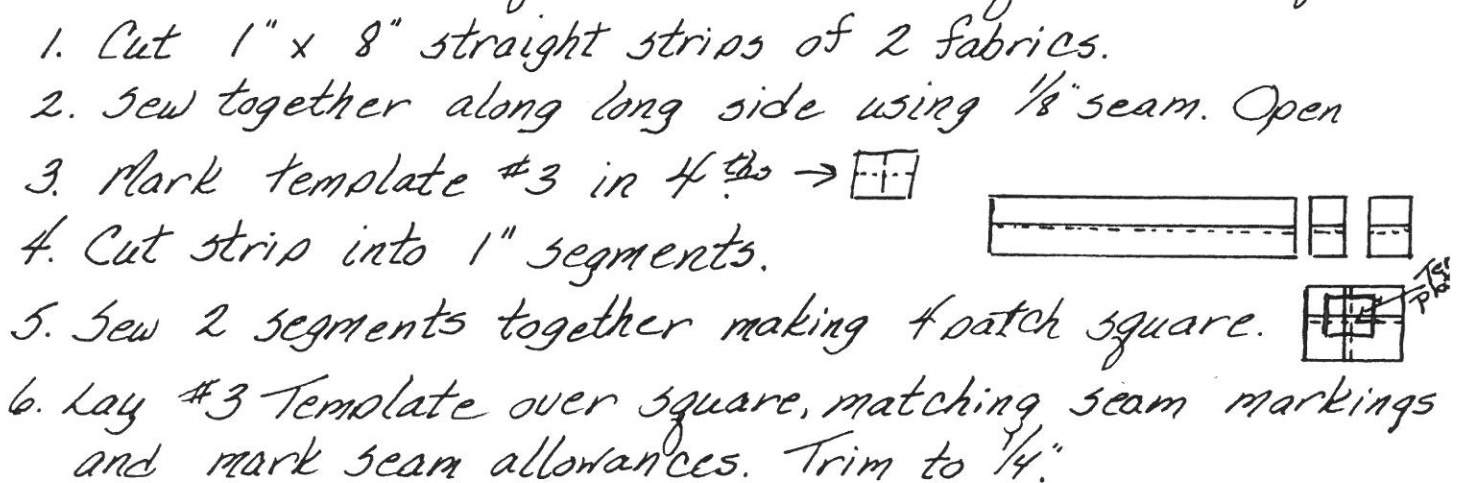 1. Cut 1" x 8" straight strips of 2 fabrics.
2. Sew together along long side using 1/8" seam. Open
3. Mark template #3 in 4ths →
4. Cut strip into 1" segments.
5. Sew 2 segments together making 4 patch square.
6. Lay #3 Template over square, matching seam markings
and mark seam allowances. Trim to 1/4".